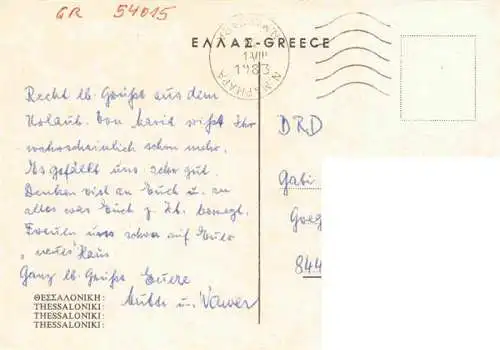 GR 54015
ΕΛΛΑΣ-GREECE
1983
Recht lb. Grüße aus dem
Urlaub. Von Maria wißt Ihr
wahrscheinlich schon mehr.
Es gefällt uns sehr gut.
Denken viel an Euch u. an
alles was Euch z. Zt. bewegt.
Freuen uns schon auf Euer
"neues" Haus
Ganz lb. Grüße Euere
u.
ΘΕΣΣΑΛΟΝΙΚΗ:
THESSALONIKI:
THESSALONIKI:
THESSALONIKI:
BRD
Gabi
844